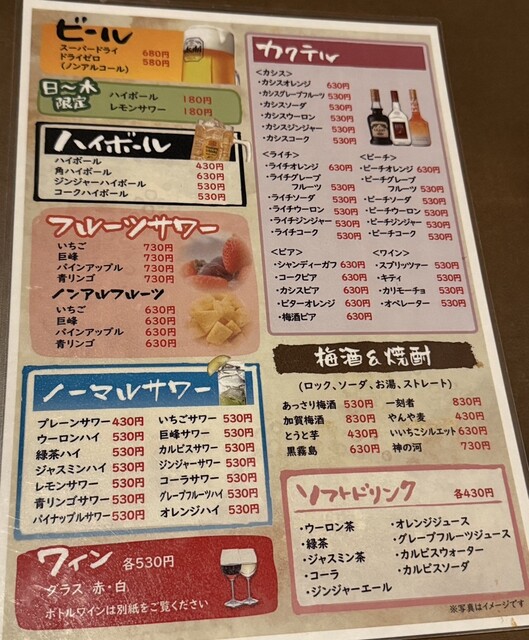 ビール
スーパードライ 680円
ドライゼロ 580円
(ノンアルコール)
日〜木
限定
ハイボール 180円
レモンサワー 180円
ハイボール
ハイボール 430円
角ハイボール 630円
ジンジャーハイボール 530円
コークハイボール 530円
フルーツサワー
いちご 730円
巨峰 730円
パインアップル 730円
青リンゴ 730円
ノンアルフルーツ
いちご 630円
巨峰 630円
パインアップル 630円
青リンゴ 630円
ノーマルサワー
プレーンサワー 430円
ウーロンハイ 530円
緑茶ハイ 530円
ジャスミンハイ 530円
レモンサワー 530円
青リンゴサワー 530円
パイナップルサワー 530円
いちごサワー 530円
巨峰サワー 530円
カルピスサワー 530円
ジンジャーサワー 530円
コーラサワー 530円
グレープフルーツハイ 530円
オレンジハイ 530円
ワイン 各530円
グラス 赤・白
ボトルワインは別紙をご覧ください
カクテル
<カシス>
・カシスオレンジ 630円
・カシスグレープフルーツ 530円
・カシスソーダ 530円
・カシスウーロン 530円
・カシスジンジャー 530円
・カシスコーク 530円
<ライチ>
・ライチオレンジ 630円
・ライチグレープ
フルーツ 530円
・ライチソーダ 530円
・ライチウーロン 530円
・ライチジンジャー 530円
・ライチコーク 530円
<ピーチ>
・ピーチオレンジ 630円
・ピーチグレープ
フルーツ 530円
・ピーチソーダ 530円
・ピーチウーロン 530円
・ピーチジンジャー 530円
・ピーチコーク 530円
<ビア>
・シャンディーガフ 630円
・コークビア 630円
・カシスビア 630円
・ビターオレンジ 630円
・梅酒ビア 630円
<ワイン>
・スプリッツァー 530円
・キティ 530円
・カリモーチョ 530円
・オペレーター 530円
梅酒&焼酎
(ロック、ソーダ、お湯、ストレート)
あっさり梅酒 530円
加賀梅酒 830円
とうと芋 430円
黒霧島 630円
一刻者 830円
やんや麦 430円
いいちこシルエット 630円
神の河 730円
ソフトドリンク 各430円
・ウーロン茶
・緑茶
・ジャスミン茶
・コーラ
・ジンジャーエール
・オレンジジュース
・グレープフルーツジュース
・カルピスウォーター
・カルピスソーダ
※写真はイメージです